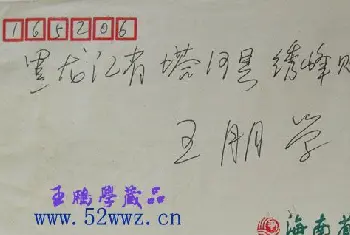 165206
黑龙江省塔河县绣峰
王朋学
王鵬學藏品
www.52wwz.cn
海南省